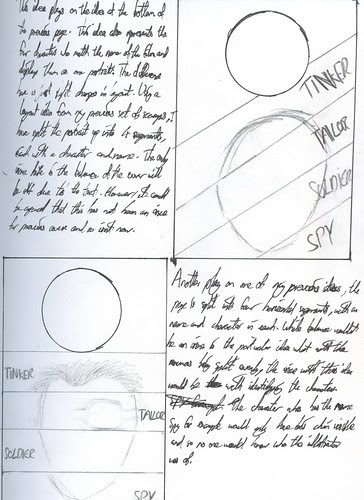 This idea plays on the idea at the bottom of
the previous page. This idea also represents the
four characters who match the name of the film and
displays them as one portrait. The difference
here is just slight changes in layout. Using a
layout idea from my previous set of examples, I
have split the portrait up into 4 segments,
each with a character and name. The only
issue here is the balance of the cover will
be off due to the text. However it could
be argued that this has not been an issue
for previous covers and so isn't now.
TINKER
TAILOR
SOLDIER
SPY
Another play on one of my previous ideas, the
page is split into four horizontal segments, with a
name and character in each. While balance wouldn't
be an issue to this particular idea what with the
names being split evenly, the issue with this idea
would be with identifying the characters.
The character who has the name
Spy for example would only have his chin visible
and so no one would know who the illustration
was of.
TINKER
TAILOR
SOLDIER
SPY